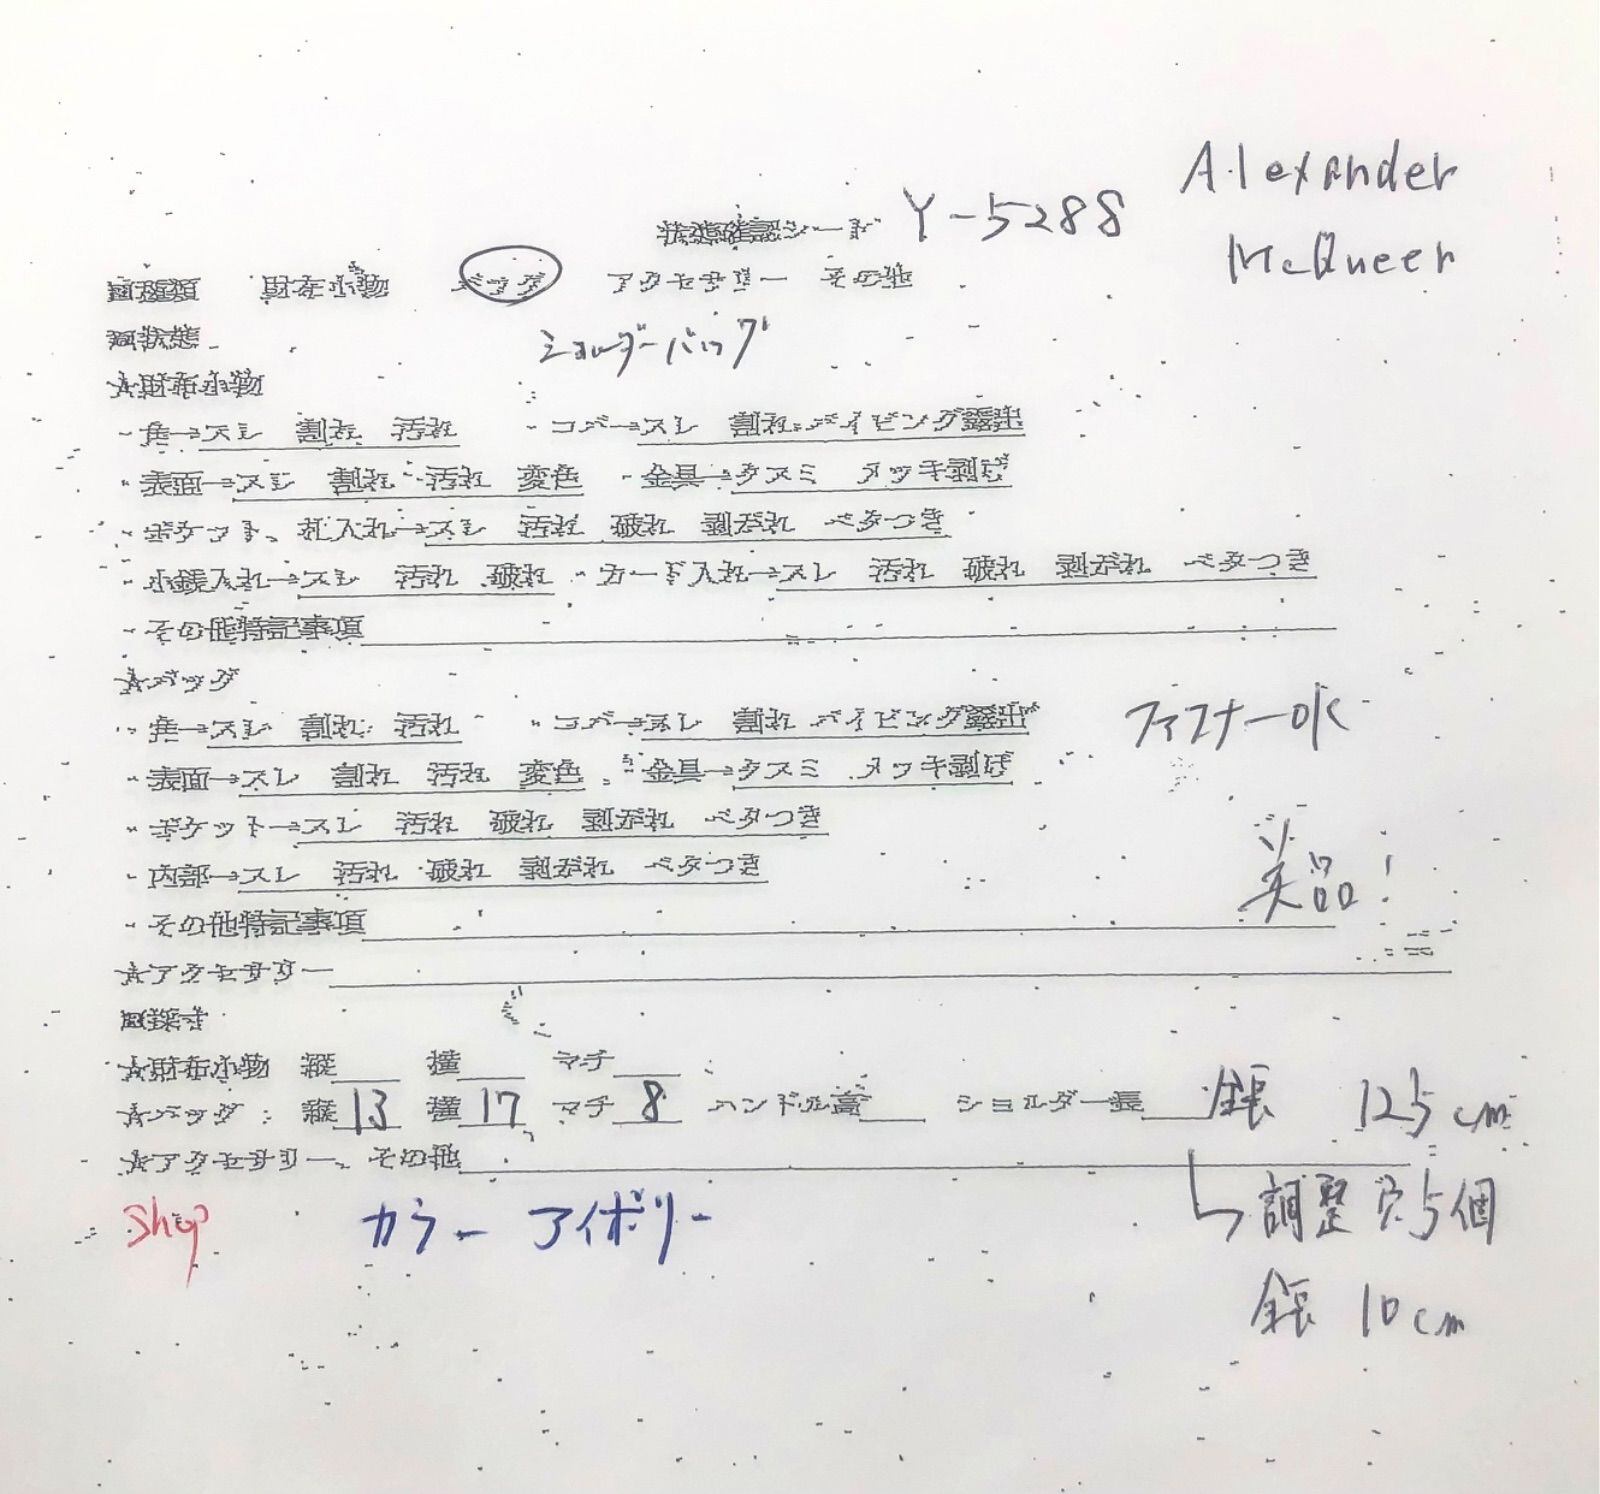 Alexander
状態確認シート Y-5288
McQueen
■種類 財布小物 バッグ アクセサリー その他
■状態
ショルダーバッグ
☆財布小物
・角→スレ 割れ 汚れ ・コバ→スレ 割れ パイピング露出
・表面→スレ 割れ 汚れ 変色 ・金具→クスミ メッキ剥げ
・ポケット、札入れ→スレ 汚れ 破れ 剥がれ ベタつき
・小銭入れ→スレ 汚れ 破れ ・カード入れ→スレ 汚れ 破れ 剥がれ ベタつき
・その他特記事項
☆バッグ
・角→スレ 割れ 汚れ ・コバ→スレ 割れ パイピング露出
ファスナーOK
・表面→スレ 割れ 汚れ 変色 ・金具→クスミ メッキ剥げ
・ポケット→スレ 汚れ 破れ 剥がれ ベタつき
・内部→スレ 汚れ 破れ 剥がれ ベタつき
美品!
・その他特記事項
☆アクセサリー
■採寸
☆財布小物 縦 横 マチ
☆バッグ 縦 13 横 17 マチ 8 ハンドル高 ショルダー長 全長 125cm
☆アクセサリー、その他
調整穴5個
shop カラー アイボリー
全長 10cm